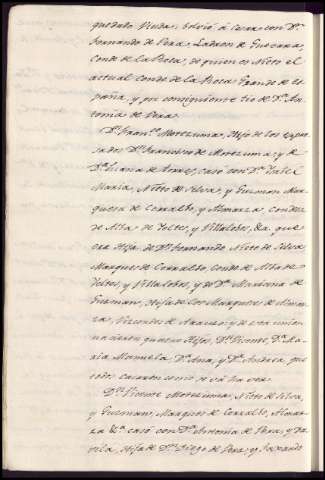 quedado Viuda, bolvió á casar con Dn.
Fernando de Vera, Ladron de Guevara,
Conde de la Roca, de quien es Nieto el
actual Conde de la Roca Grande de Es
paña, y por consiguiente tio de Da. An
tonia de Vera.
Dn. Franco. Motezuma, Hijo de los expre
sados Dn. Francisco de Motezuma, y de
Da. Luana de Torres, casó con Da. Isabel
Maria, Nieto de Silva, y Guzman Mar
quesa de Cerralbo, y Almarza Condesa
de Alba de Yeltes, y Villalobos, &a. que
era Hija de Dn. Fernando Nieto de Silva
Marques de Cerralbo, Conde de Alba de
Yeltes, y Villalobos, y de Da. Mariana de
Guzman, Hija de los Marqueses de Almar
za, Vizcondes de Arauzo: y de esta union
nacieron quatro Hijos, Dn. Vicente, Da. Ma
ria Manuela, Da. Ana, y Da. Andrea, que
todos casaron como se vá ha ver.
Dn. Vicente Motezuma, Nieto de Silva,
y Guzman, Marques de Cerralbo, Almar
za &a. casó con Da. Antonia de Vera, y Da
vila, Hija de Dn. Diego de Vera, y